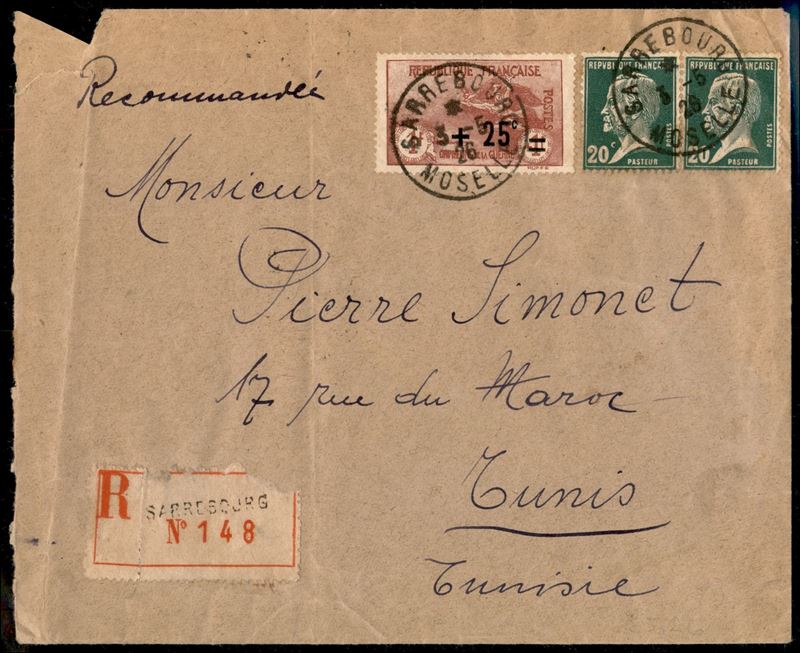 Recommandée
REPUBLIQUE FRANÇAISE
POSTES
+ 25c
ORPHELINS DE LA GUERRE
SARREBOURG
3 -5
26
MOSELLE
REPVBLIQUE FRANÇAISE
POSTES
20c
PASTEUR
REPVBLIQUE FRANÇAISE
POSTES
20c
PASTEUR
SARREBOURG
3 -5
26
MOSELLE
Monsieur
Pierre Simonet
17 rue du Maroc
Tunis
Tunisie
R
SARREBOURG
N° 148